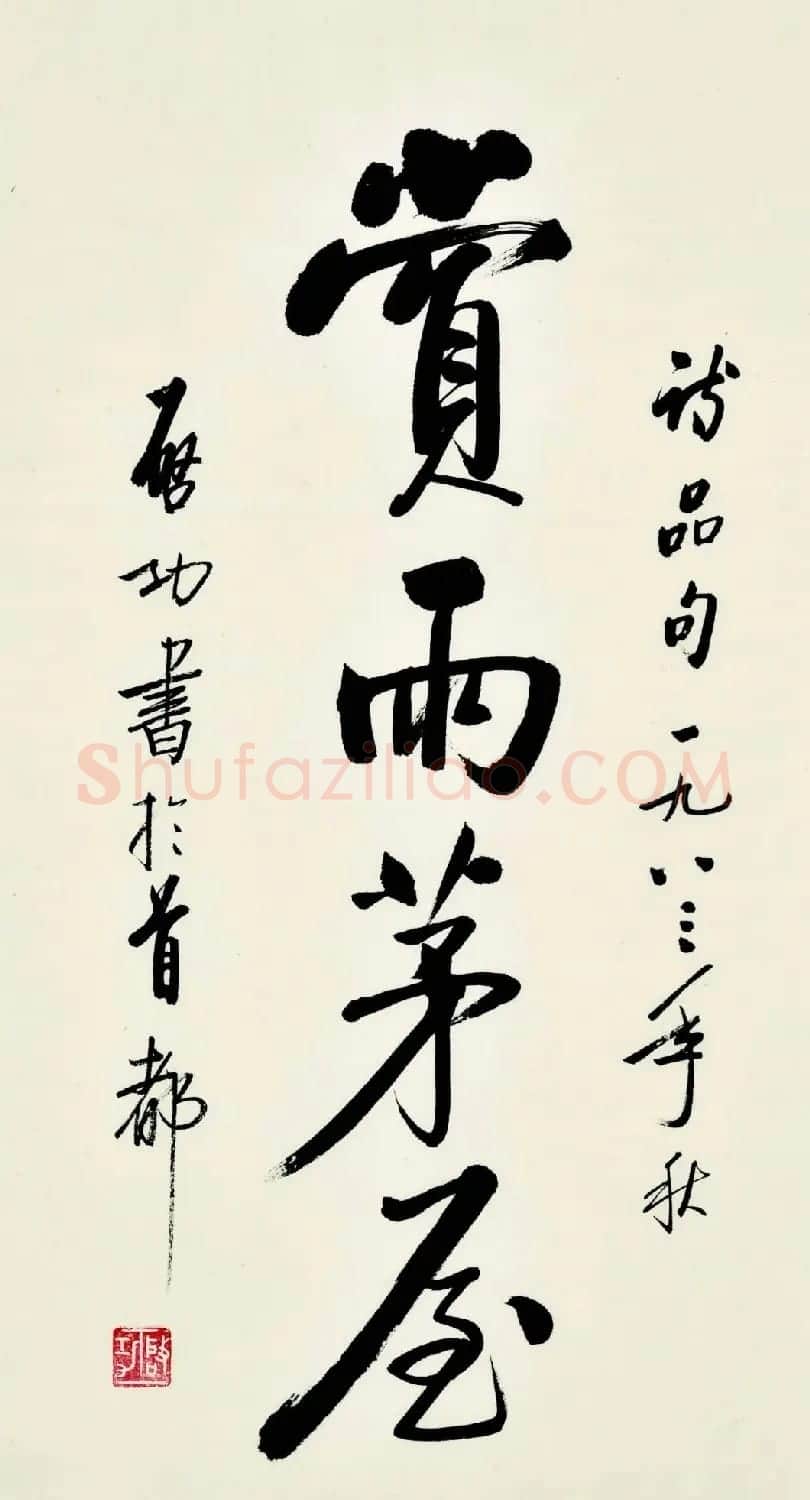 詩品句 一九八三年秋
賞雨茅屋
啓功書於首都
啓功
Shufaziliao.COM